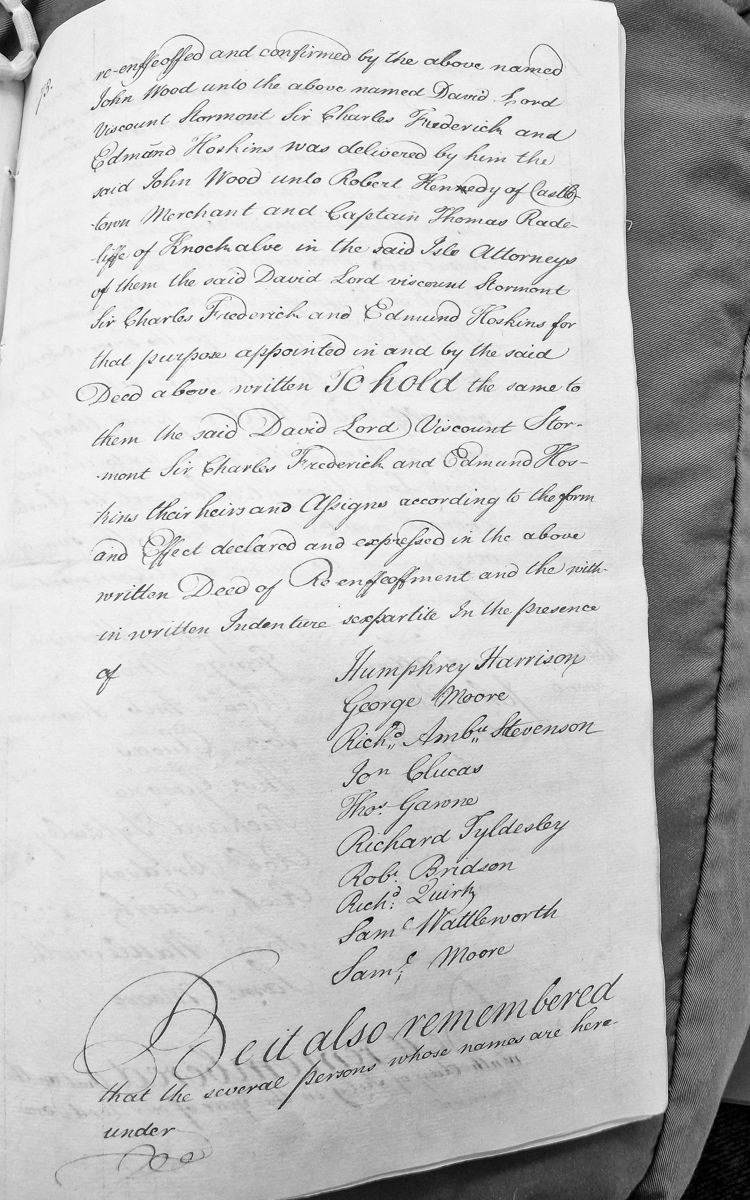 73.
re-enffeoffed and confirmed by the above named
John Wood unto the above named David Lord
Viscount Stormont Sir Charles Frederick and
Edmund Hoskins was delivered by him the
said John Wood unto Robert Kennedy of Castle-
town Merchant and Captain Thomas Rade-
-liffe of Knockalve in the said Isle Attorneys
of them the said David Lord viscount Stormont
Sir Charles Frederick and Edmund Hoskins for
that purpose appointed in and by the said
Deed above written To hold the same to
them the said David Lord Viscount Stor-
-mont Sir Charles Frederick and Edmund Hos-
-kins their heirs and Assigns according to the form
and Effect declared and expressed in the above
written Deed of Re-enffeoffment and the with-
-in written Indenture sexpartite In the presence
of
Humphrey Harrison
George Moore
Rich.d Amb.se Stevenson
Jon Clucas
Tho.s Gawne
Richard Tyldesley
Rob.t Bridson
Rich.d Quirk
Sam.l Wattleworth
Sam.l Moore
Be it also remembered
that the several persons whose names are here-
under